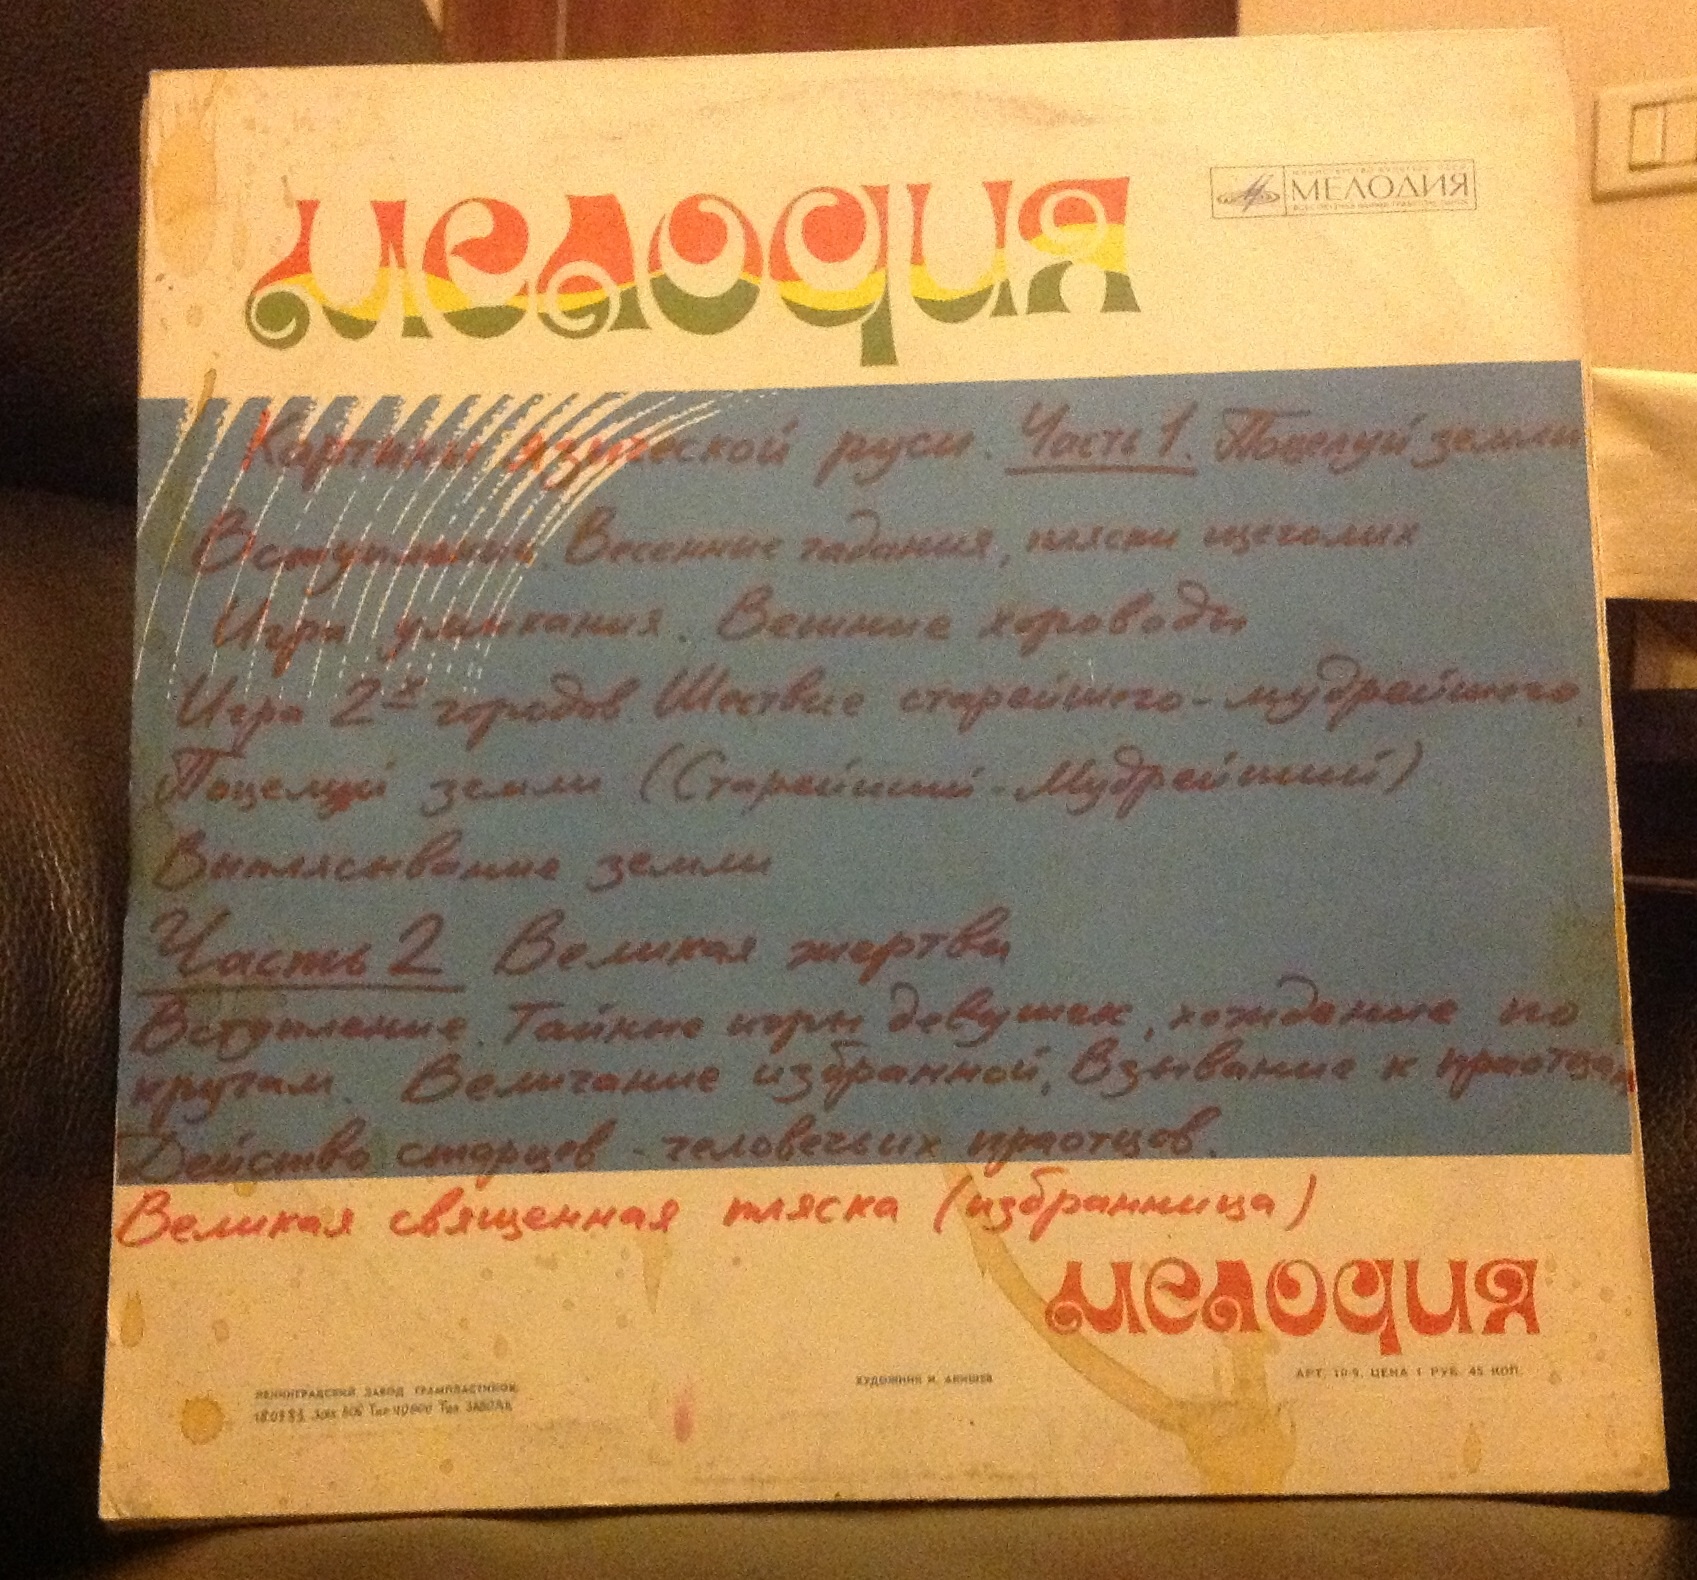 мелодия
МЕЛОДИЯ
Картины языческой руси. Часть 1. Поцелуй земли
Вступление. Весенние гадания, пляски щеголих
Игра умыкания. Вешние хороводы
Игра 2х городов. Шествие старейшего-мудрейшего.
Поцелуй земли (Старейший-Мудрейший)
Выплясывание земли
Часть 2 Великая жертва
Вступление. Тайные игры девушек, хождение по
кругам. Величание избранной, Взывание к праотцам
Действо старцев - человечьих праотцов.
Великая священная пляска (избранница)
мелодия
АРТ. 10-9. ЦЕНА 1 РУБ. 45 КОП.
ХУДОЖНИК И.
ЛЕНИНГРАДСКИЙ ЗАВОД ГРАМПЛАСТИНОК